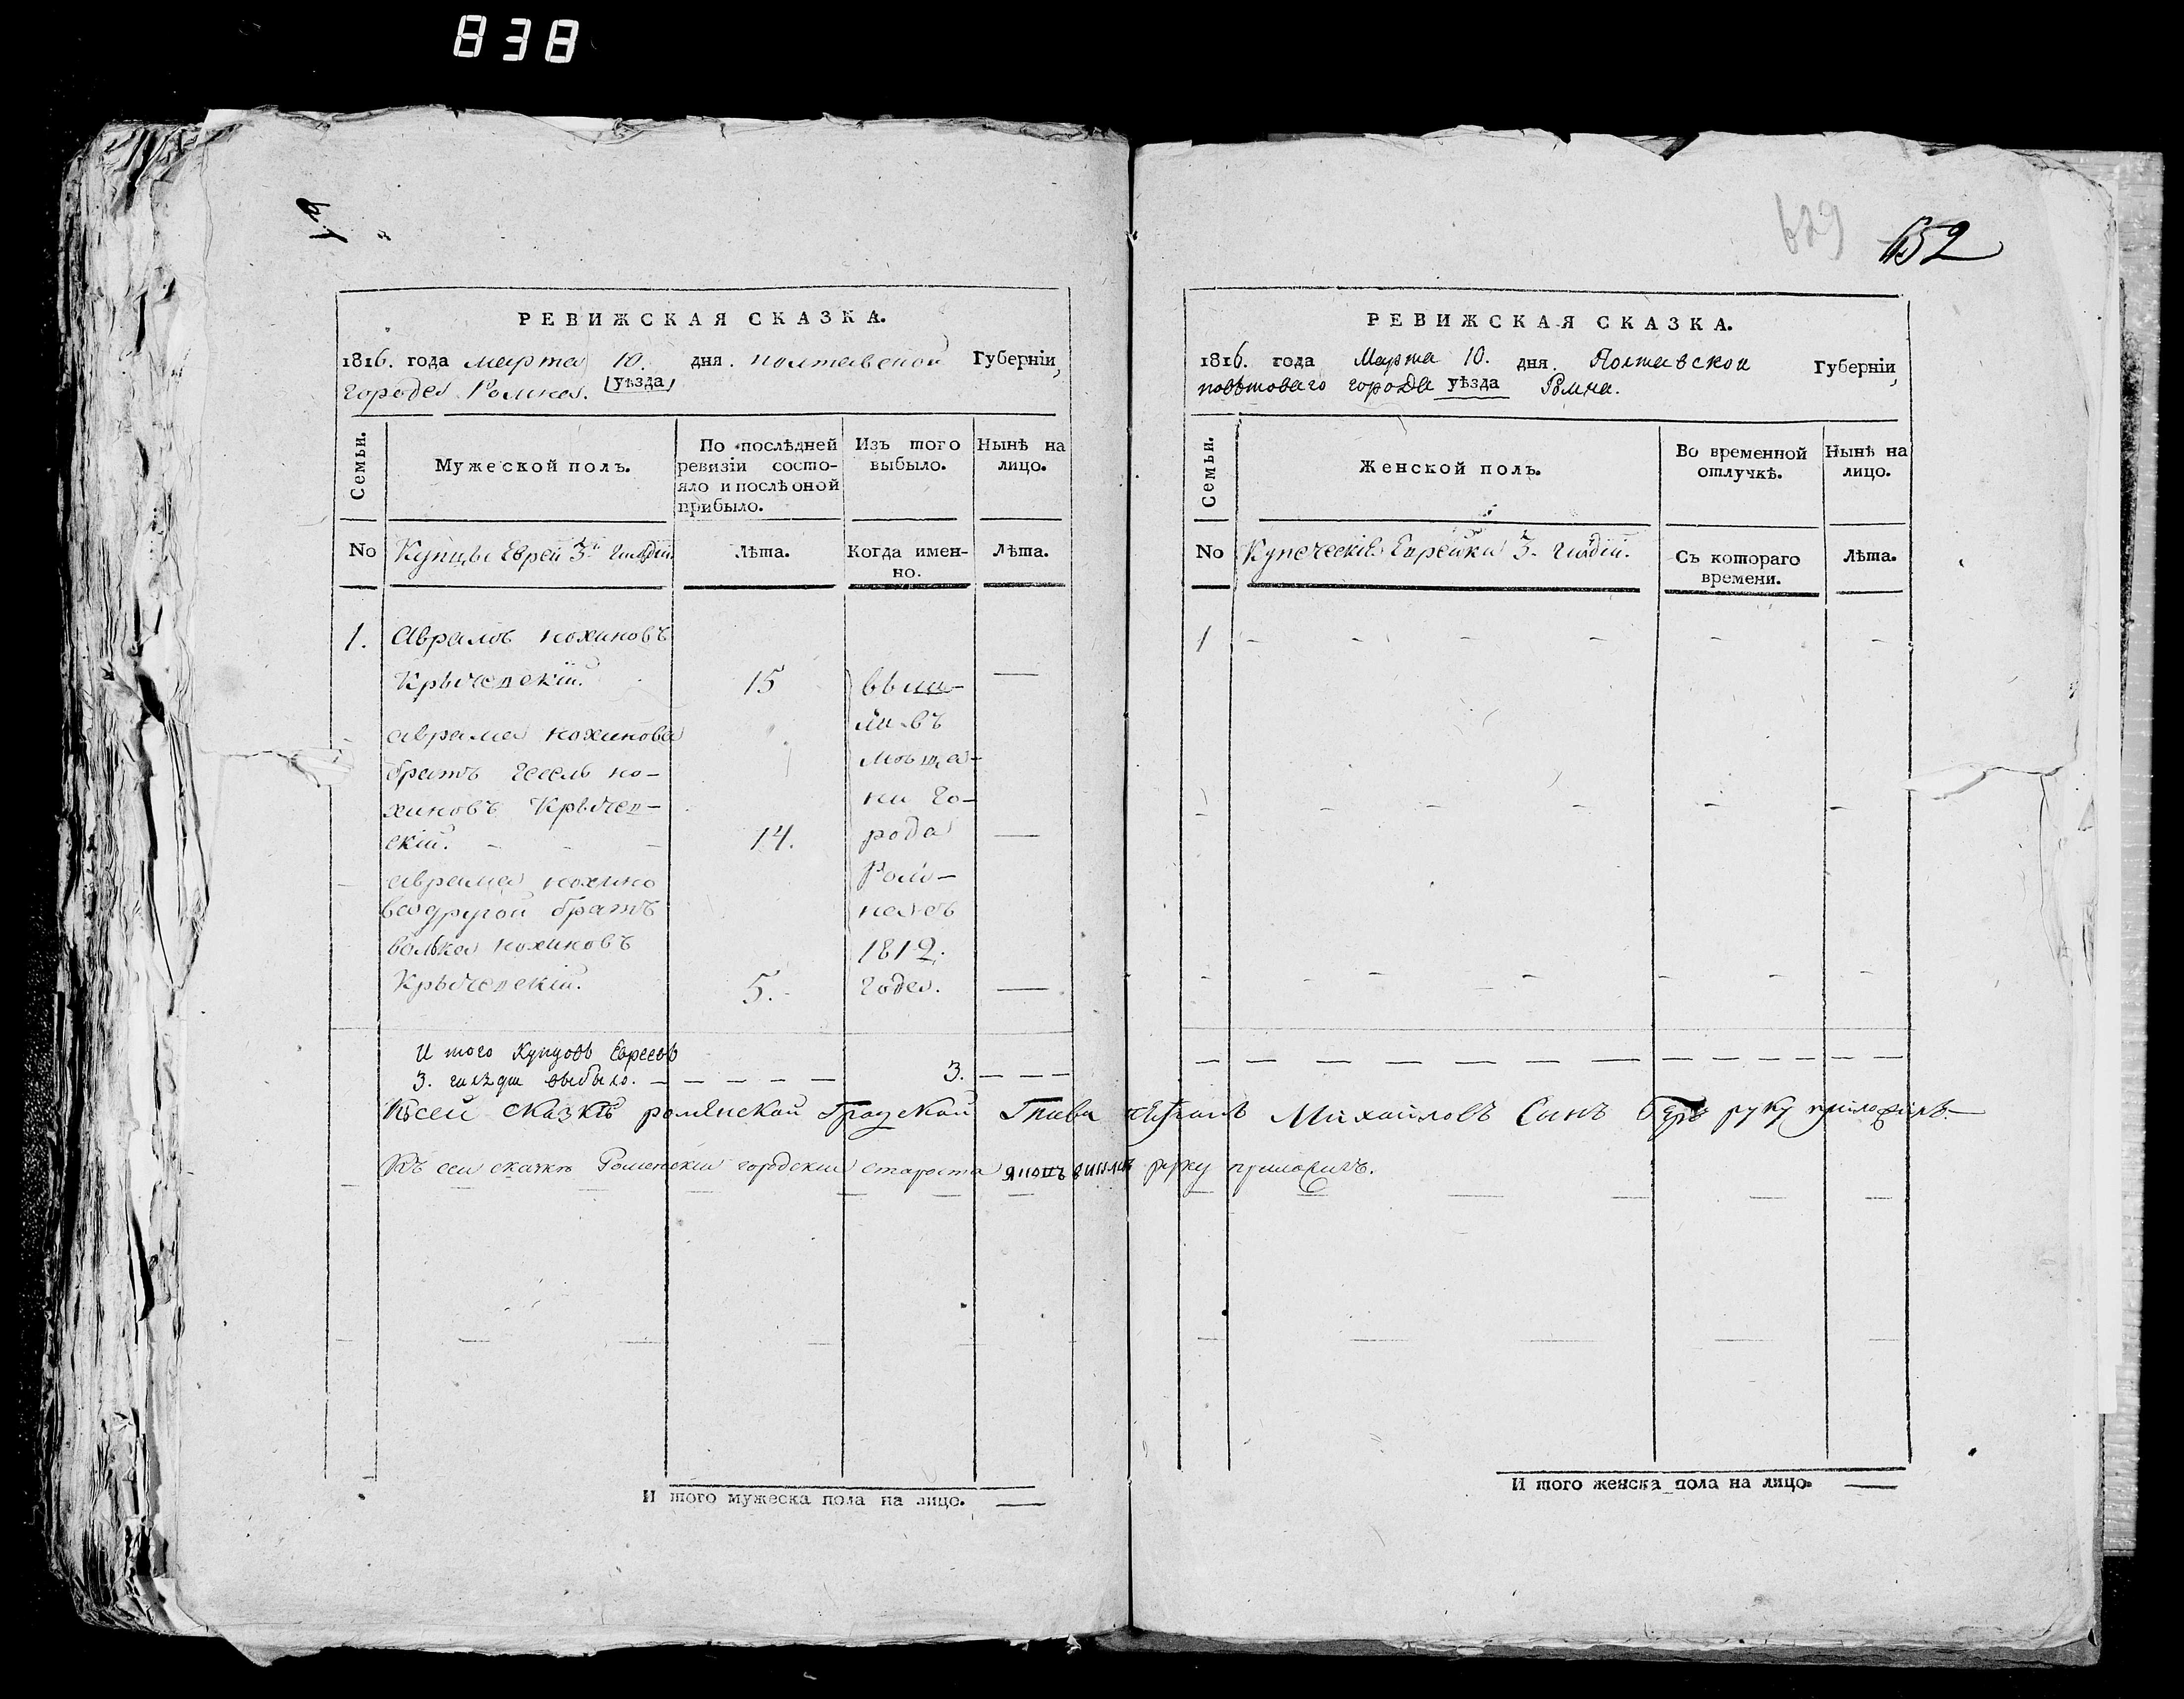 838
629
652
РЕВИЖСКАЯ СКАЗКА.
1816. года марта 10. дня. полтавской Губерніи,
города Ромна. уѣзда
Семьи.
Мужеской полъ.
По послѣдней ревизіи состо-
яло и послѣ оной
прибыло.
Изъ того
выбыло.
Нынѣ на
лицо.
No
Купцы Евреи 3й гилдіи.
Лѣта.
Когда имен-
но.
Лѣта.
1. Аврамъ нохимовъ
Крычевскій. 15 —
аврама нохимова
братъ гесель но-
химовъ Крычев-
скій. 14. —
аврама нохимо
ва другой братъ
волька нохимовъ
Крычевскій. 5. —
выш-
ли въ
мѣща-
ни го-
рода
Ром-
на въ
1812.
года.
И того Купцовъ Евреевъ
3. гилдіи выбыло. 3.
Къ сей сказкѣ роменской градской Глава Михайловъ Синъ руку приложилъ.
Къ сей сказкѣ Роменский городский староста руку приложилъ.
И того мужеска пола на лицо. —
РЕВИЖСКАЯ СКАЗКА.
1816. года Марта 10. дня. Полтавской Губерніи,
повѣтоваго города уѣзда Ромна.
Семьи.
Женской полъ.
Во временной
отлучкѣ.
Нынѣ на
лицо.
No
Купеческіе Еврейки 3. гилдіи.
Съ котораго
времени.
Лѣта.
1
И того женска пола на лицо. —